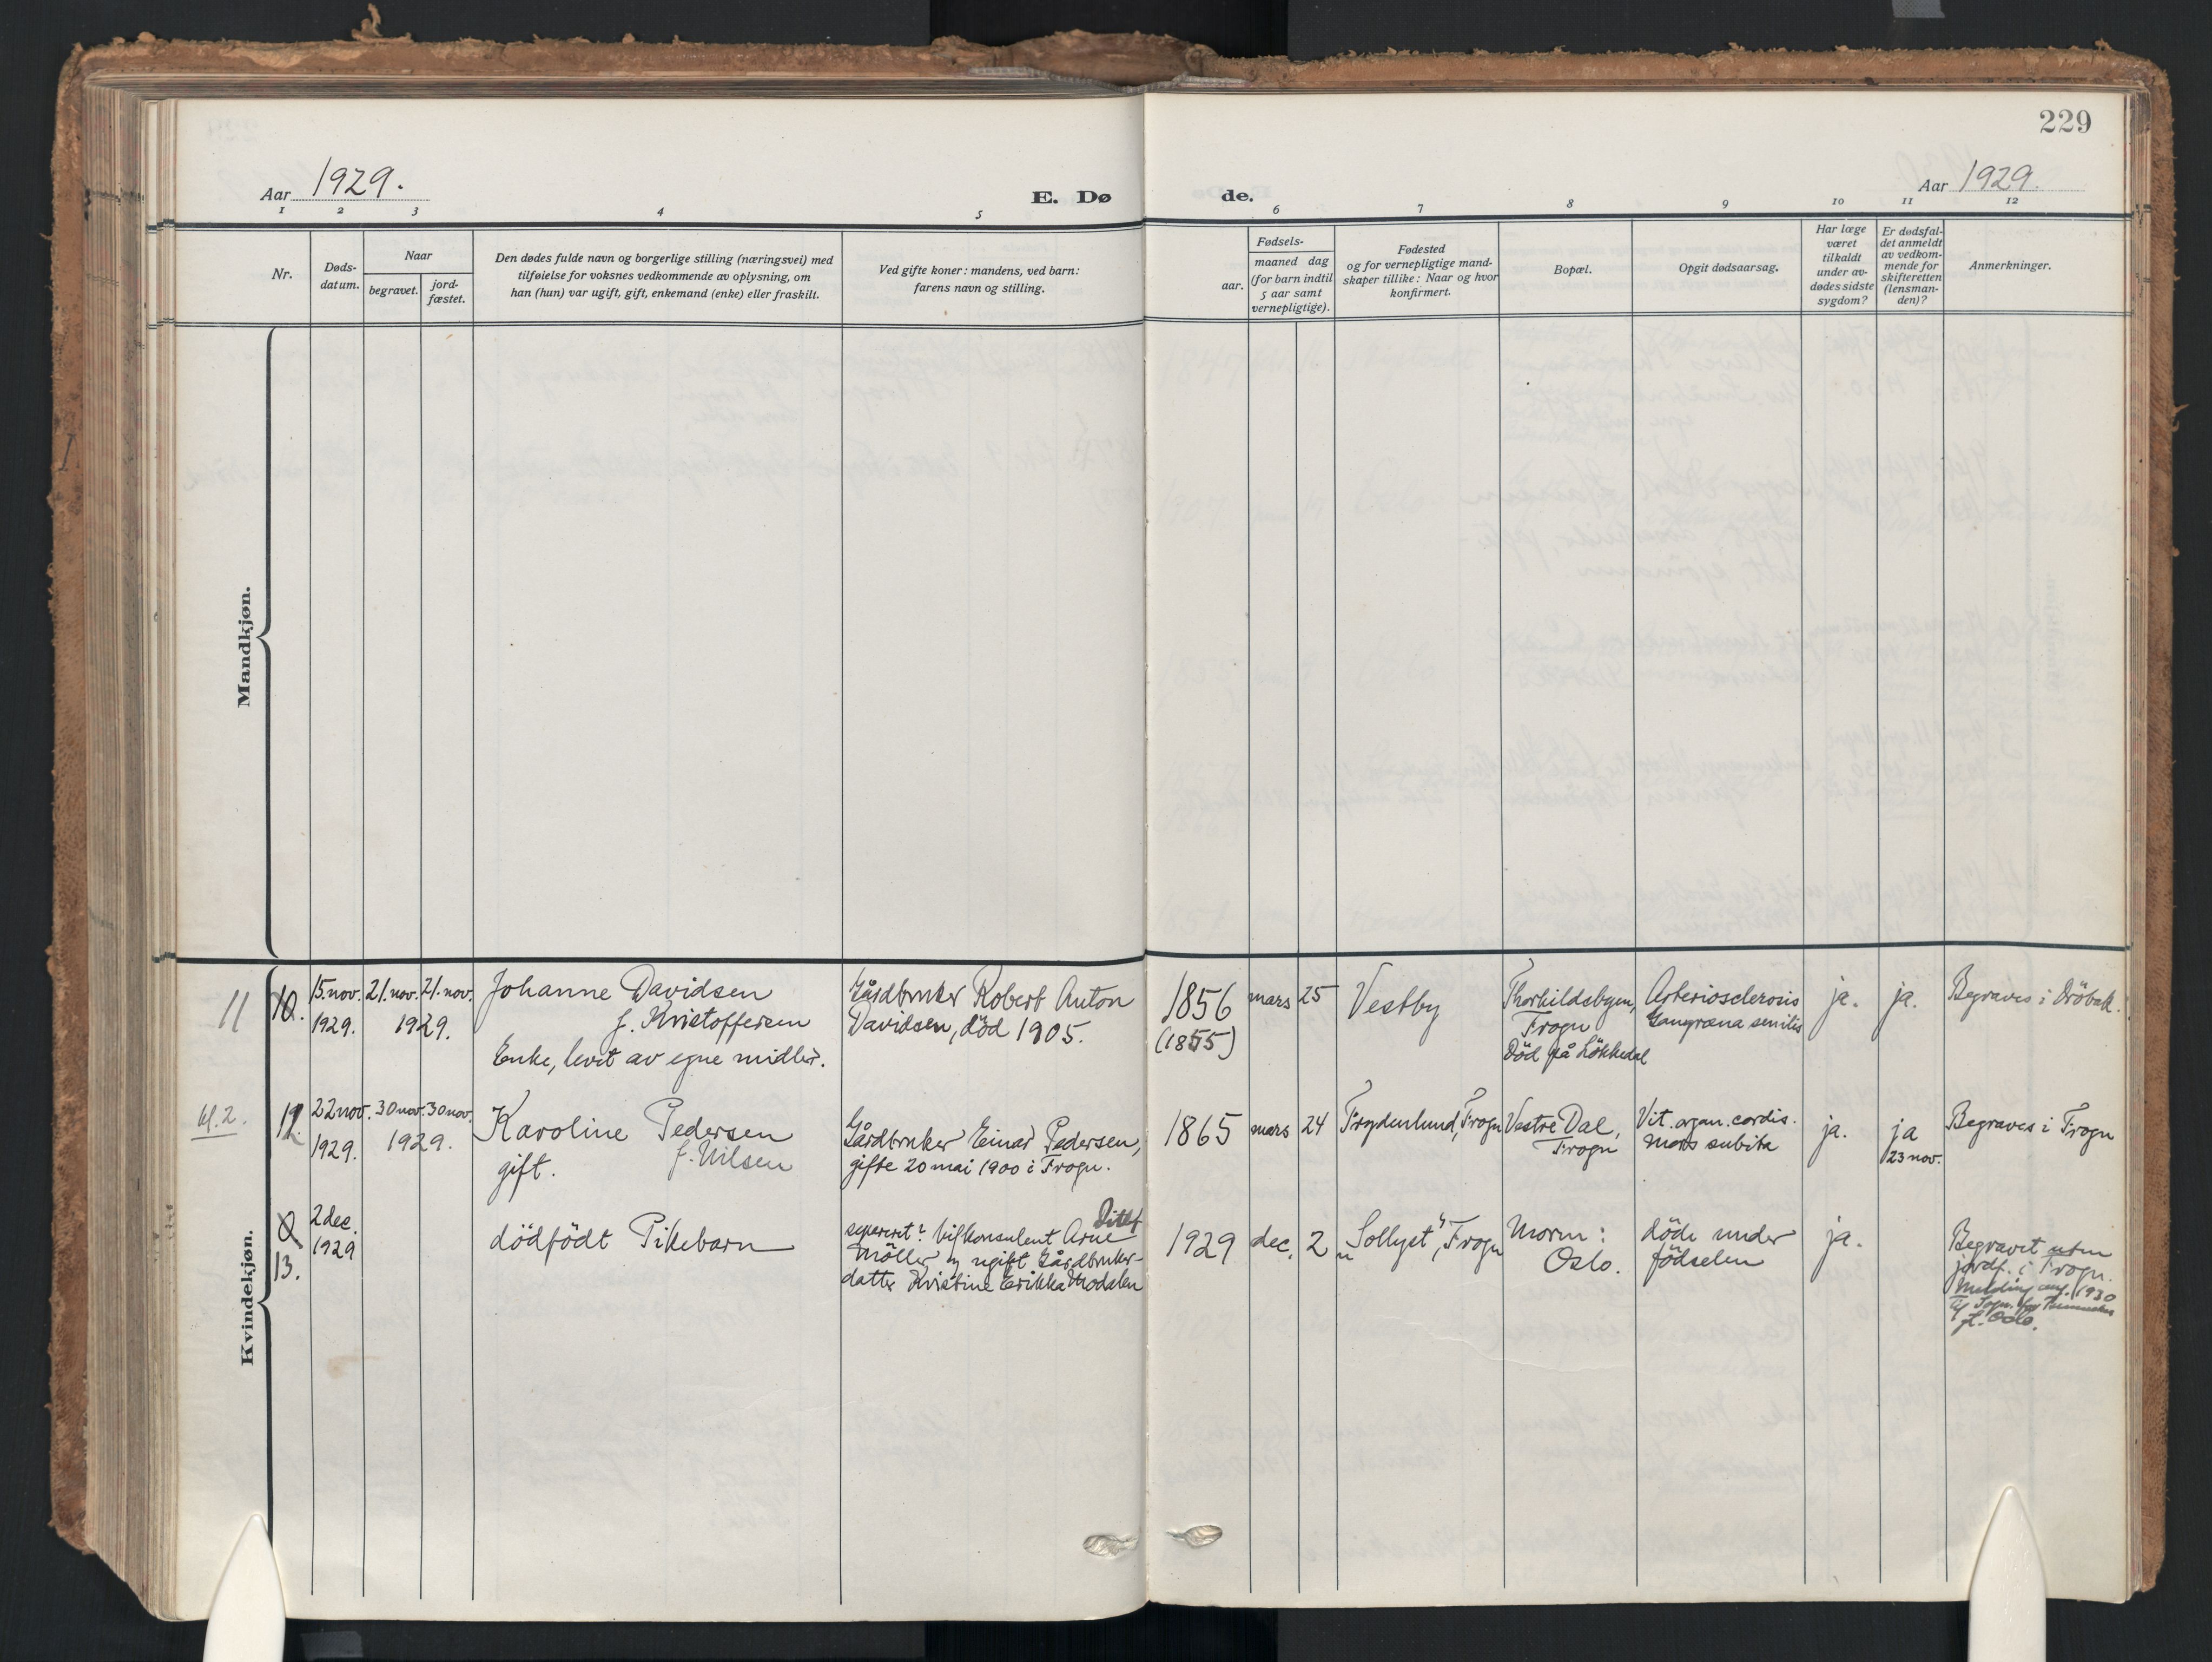 229
Aar 1929.
E. Dø
de.
Aar 1929.
1 2 3 4 5 6 7 8 9 10 11 12
Nr.
Døds-
datum.
Naar
begravet.
jord-
fæstet.
Den dødes fulde navn og borgerlige stilling (næringsvei) med
tilføielse for voksnes vedkommende av oplysning, om
han (hun) var ugift, gift, enkemand (enke) eller fraskilt.
Ved gifte koner: mandens, ved barn:
farens navn og stilling.
Fødsels-
aar.
maaned dag
(for barn indtil
5 aar samt
vernepligtige).
Fødested
og for vernepligtige mand-
skaper tillike: Naar og hvor
konfirmert.
Bopæl.
Opgit dødsaarsag.
Har læge
været
tilkaldt
under av-
dødes sidste
sygdom?
Er dødsfal-
det anmeldt
av vedkom-
mende for
skifteretten
(lensman-
den)?
Anmerkninger.
Mandkjøn.
Kvindekjøn.
11
10.
15. nov.
1929.
21. nov. 21. nov.
1929.
Johanne Davidsen
f. Kristoffersen
Enke, levet av egne midler.
Gårdbruker Robert Anton
Davidsen, död 1905.
1856
(1855)
mars 25
Vestby
Thorkildsbyen,
Frogn
Död på Lökkedal
Arteriosclerosis
Gangræna senilis
ja.
ja.
Begraves i Dröbak.
kl. 2.
12.
22 nov.
1929.
30 nov. 30 nov.
1929.
Karoline Pedersen
f. Nilsen
gift.
Gårdbruker Einar Pedersen,
gifte 20 mai 1900 i Frogn.
1865
mars 24
Frydenlund, Frogn
Vestre Dal,
Frogn
Vit. organ. cordis.
Mors subita
ja.
ja
23 nov.
Begraves i Frogn
13.
2 dec.
1929
dödfödt Pikebarn
Ditlef
separeret? konsulent Arne
Möller og ugift Gårdbruker-
datter Kristine Erikka Modalen
1929
dec. 2
"Sollyst", Frogn
Moren:
Oslo.
döde under
födselen
ja.
Begravet uten
jordf. i Frogn.
Melding aug. 1930
til Sogn. for
Oslo.